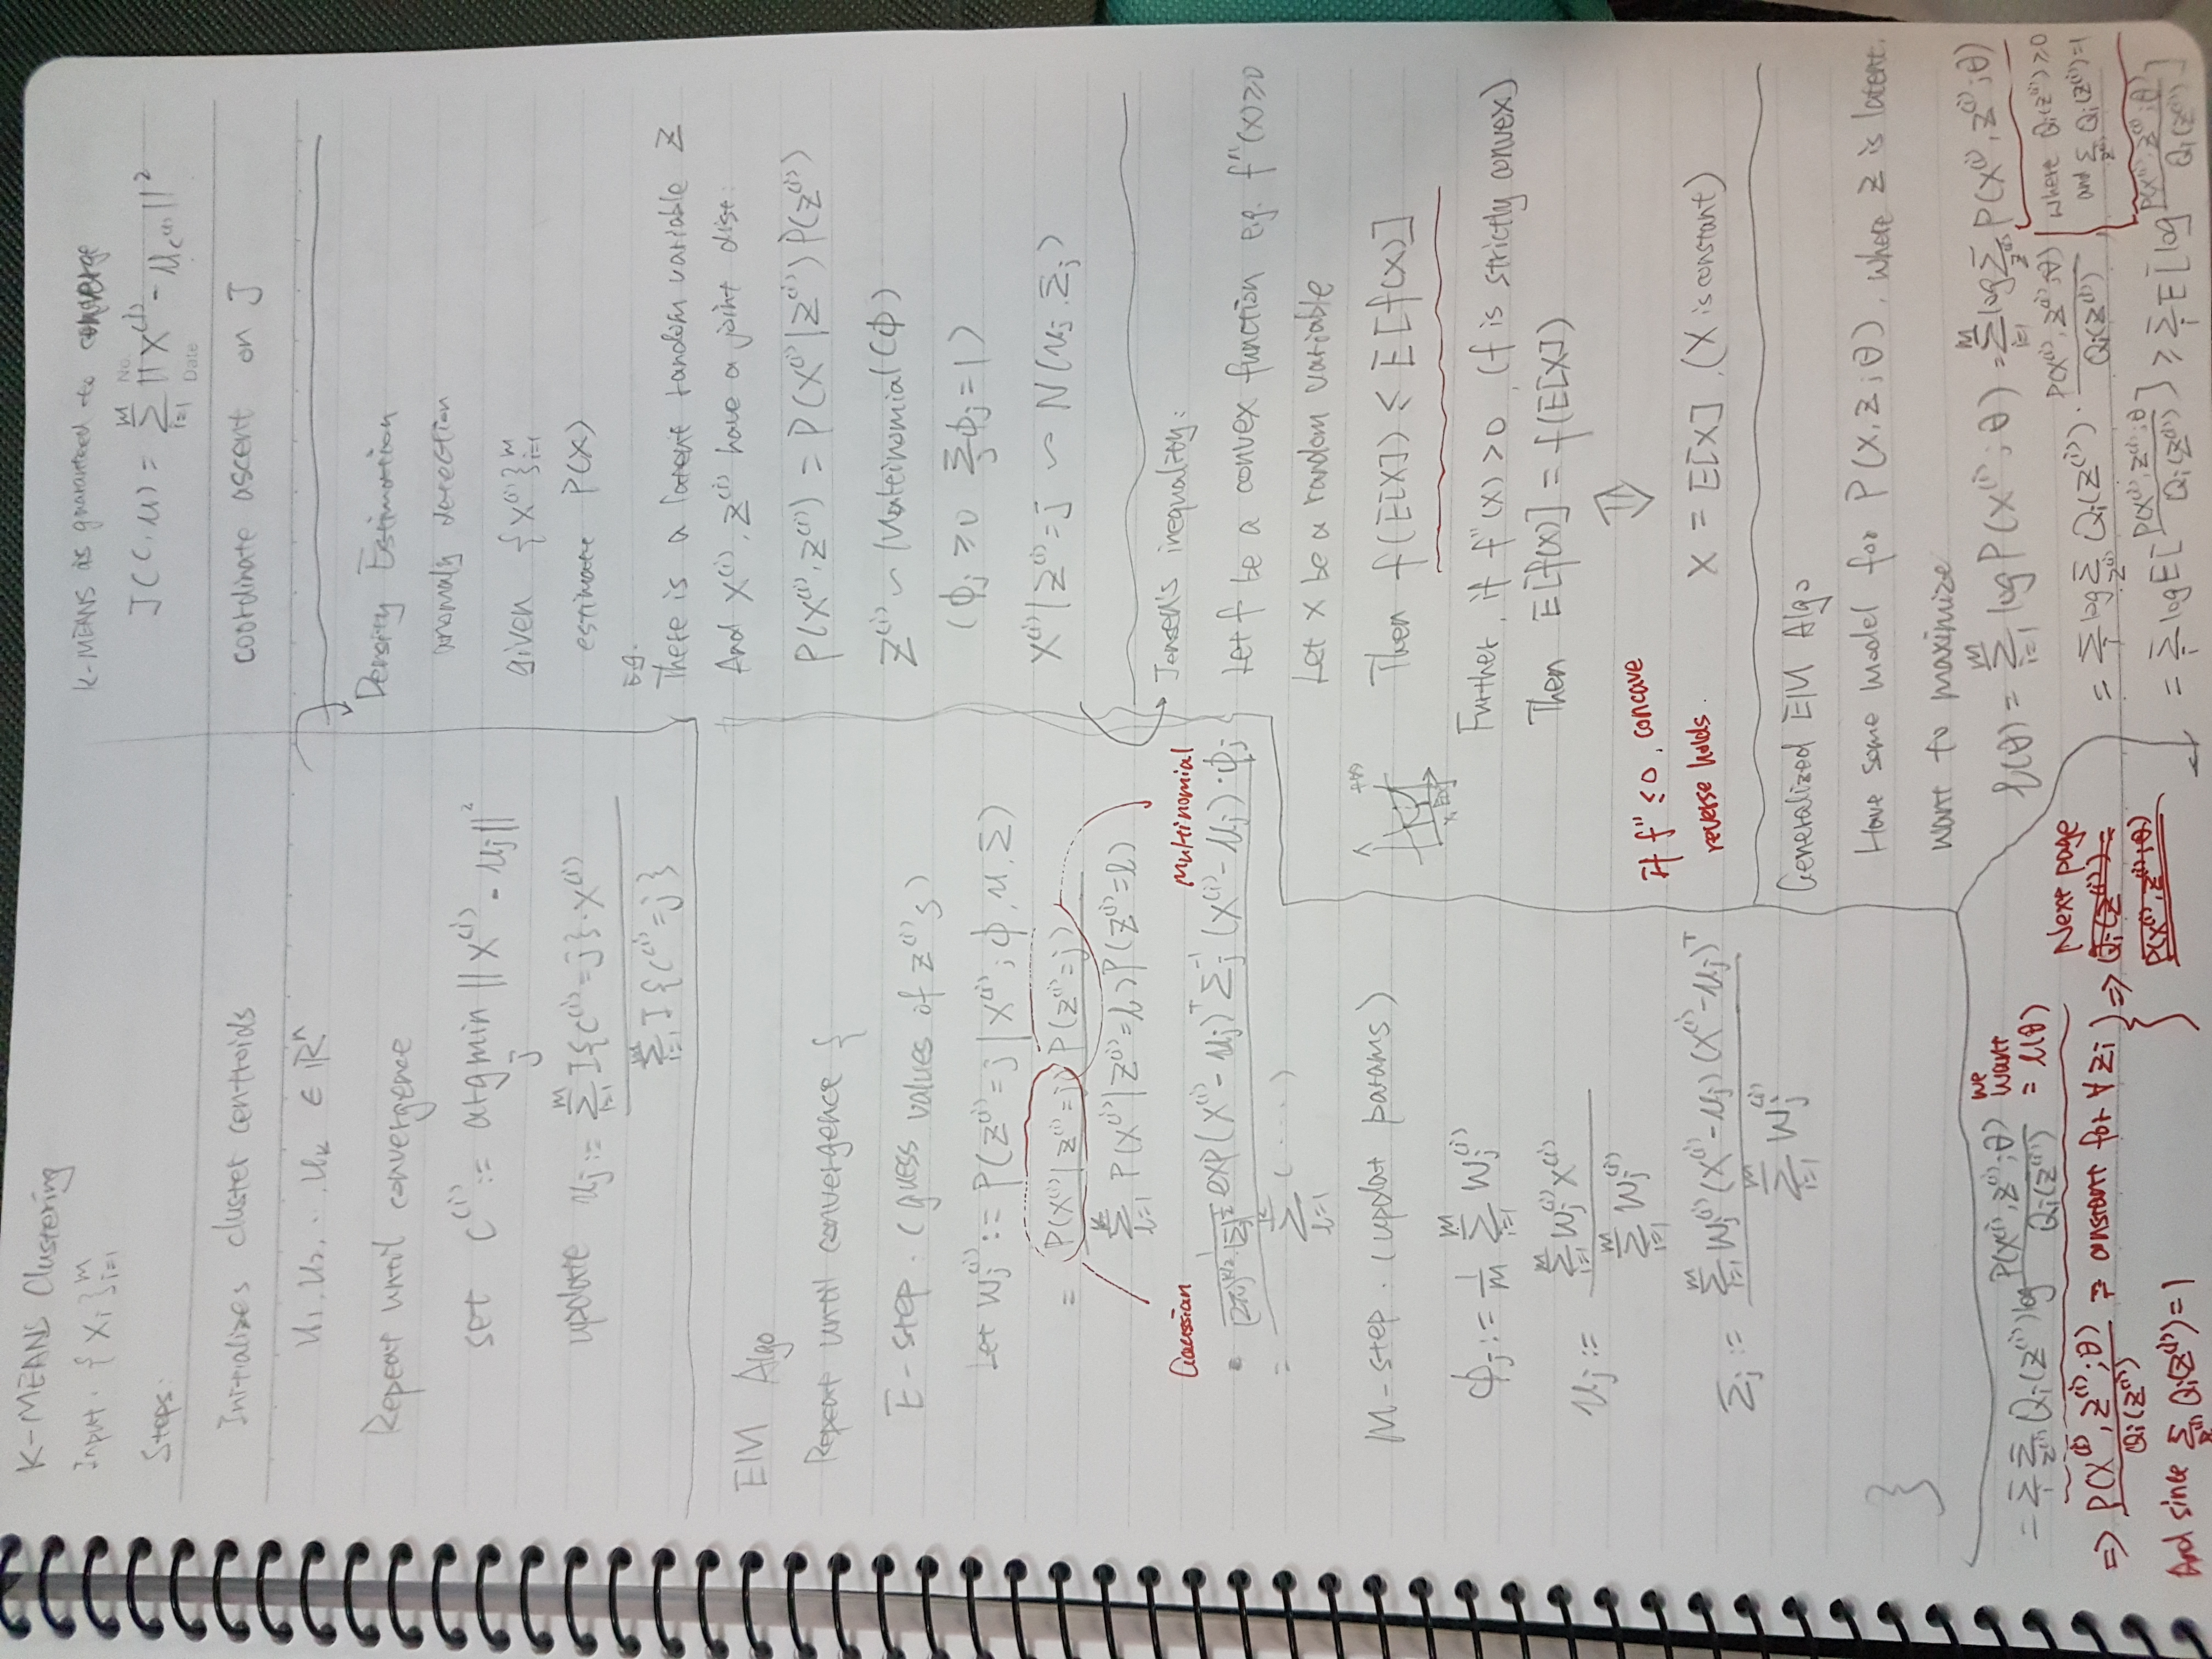 K-MEANS Clustering
Input. { X_i }_{i=1}^m
Steps:
Initializes cluster centroids
u_1, u_2, ..., u_k ∈ R^n
Repeat until convergence
set C^(i) := argmin_j || X^(i) - μ_j ||^2
update μ_j := Σ_{i=1}^m I{C^(i)=j}·X^(i)
Σ_{i=1}^m I{C^(i)=j}
K-MEANS is guaranteed to converge
No.
J(C, μ) = Σ_{i=1}^m || X^(i) - μ_{C^(i)} ||^2
Date
coordinate ascent on J
Density Estimation
anomaly detection
given {X^(i)}_{i=1}^m
estimate P(X)
Eg.
There is a latent random variable Z
And X^(i), Z^(i) have a joint dist.
P(X^(i), Z^(i)) = P(X^(i)|Z^(i)) P(Z^(i))
Z^(i) ~ Multinomial(ϕ)
(ϕ_j ≥ 0 Σ_j ϕ_j = 1)
X^(i)|Z^(i)=j ~ N(μ_j, Σ_j)
EM Algo
Repeat until convergence {
E-step. (guess values of z^(i)'s)
Let W_j^(i) := P(Z^(i)=j | X^(i); ϕ, μ, Σ)
= P(X^(i)|Z^(i)=j) P(Z^(i)=j)
Σ_{l=1}^k P(X^(i)|Z^(i)=l) P(Z^(i)=l)
Gaussian
Multinomial
= 1/((2π)^{n/2}·|Σ_j|^{1/2}) exp(X^(i) - μ_j)^T Σ_j^{-1} (X^(i) - μ_j)·ϕ_j
Σ_{l=1}^k (....)
M-step. (updat params)
ϕ_j := 1/m Σ_{i=1}^m W_j^(i)
μ_j := Σ_{i=1}^m W_j^(i) X^(i)
Σ_{i=1}^m W_j^(i)
Σ_j := Σ_{i=1}^m W_j^(i) (X^(i) - μ_j)(X^(i) - μ_j)^T
Σ_{i=1}^m W_j^(i)
}
Jensen's inequality:
Let f be a convex function e.g. f''(x) ≥ 0
Let X be a random variable
f(x)
Then f(E[X]) ≤ E[f(X)]
Further, if f''(x) > 0, (f is strictly convex)
Then E[f(X)] = f(E[X])
⇕
If f'' ≤ 0, concave
reverse holds.
X = E[X], (X is constant)
Generalized EM Algo
Have some model for P(X, Z; θ), where Z is latent.
want to maximize
l(θ) = Σ_{i=1}^m log P(X^(i); θ) = Σ_{i=1}^m log Σ_{z^(i)} P(X^(i), Z^(i); θ)
= Σ_i log Σ_{z^(i)} Q_i(Z^(i)) · P(X^(i), Z^(i); θ)/Q_i(Z^(i))
where Q_i(Z^(i)) ≥ 0
and Σ_{z^(i)} Q_i(Z^(i)) = 1
= Σ_i log E[P(X^(i), Z^(i); θ)/Q_i(Z^(i))] ≥ Σ_i E[log P(X^(i), Z^(i); θ)/Q_i(Z^(i))]
= Σ_i Σ_{z^(i)} Q_i(Z^(i)) log P(X^(i), Z^(i); θ)/Q_i(Z^(i))
we
want
= l(θ)
=> P(X^(i), Z^(i); θ)/Q_i(Z^(i)) = constant for ∀ Zi
And since Σ_{z^(i)} Q_i(Z^(i)) = 1
} =>
Next page
Q_i(Z^(i)) =
P(X^(i), Z^(i); θ)